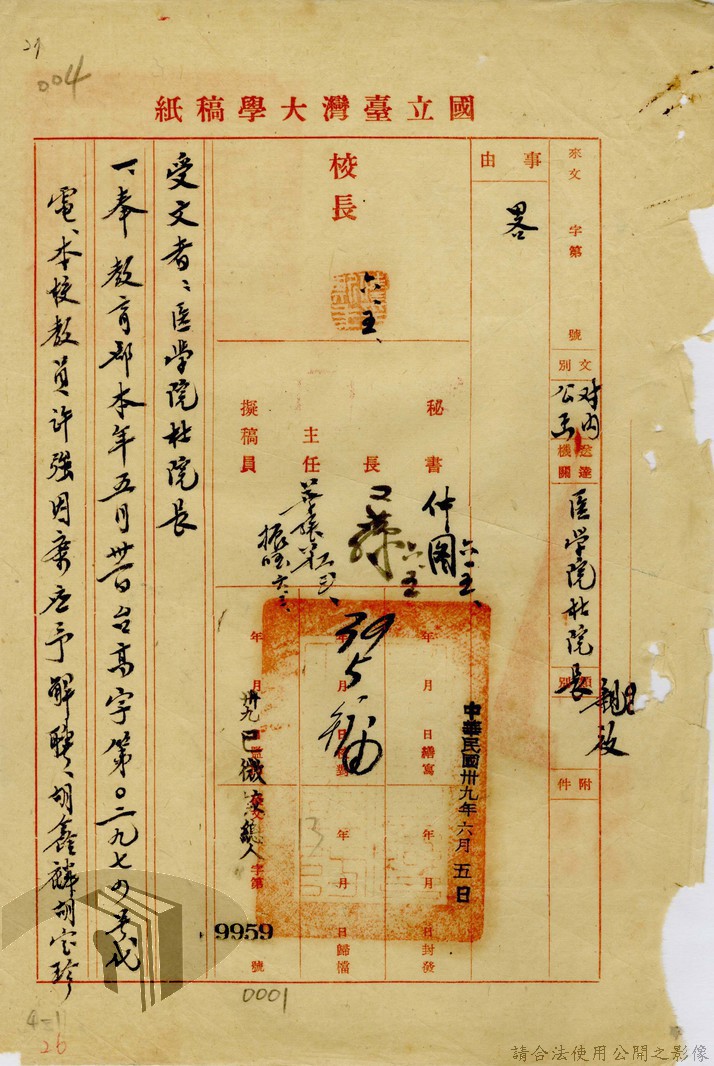 29
004
國立臺灣大學稿紙
來文 字第 號
文別 对内公函
送達機關 医學院杜院長 親啟
類別
附件
事由
畧
校長
六、五、
秘書 仲圖 六、五、
長 六、五
主任
擬稿員 振 六、三、
年 月 日繕寫
年 月 日校對
年 月 日監印
年 月 日封發
年 月 日歸檔
39 5
中華民國卅九年六月五日
卅九 巳微 人
發文 字第 9959 號
13
受文者：医學院杜院長
一、奉 教育部本年五月卅一日台高字第〇二九七四号代
電、本校教員許強因案应予解聘、胡鑫麟胡宝珍
0001
4-1
26
請合法使用公開之影像